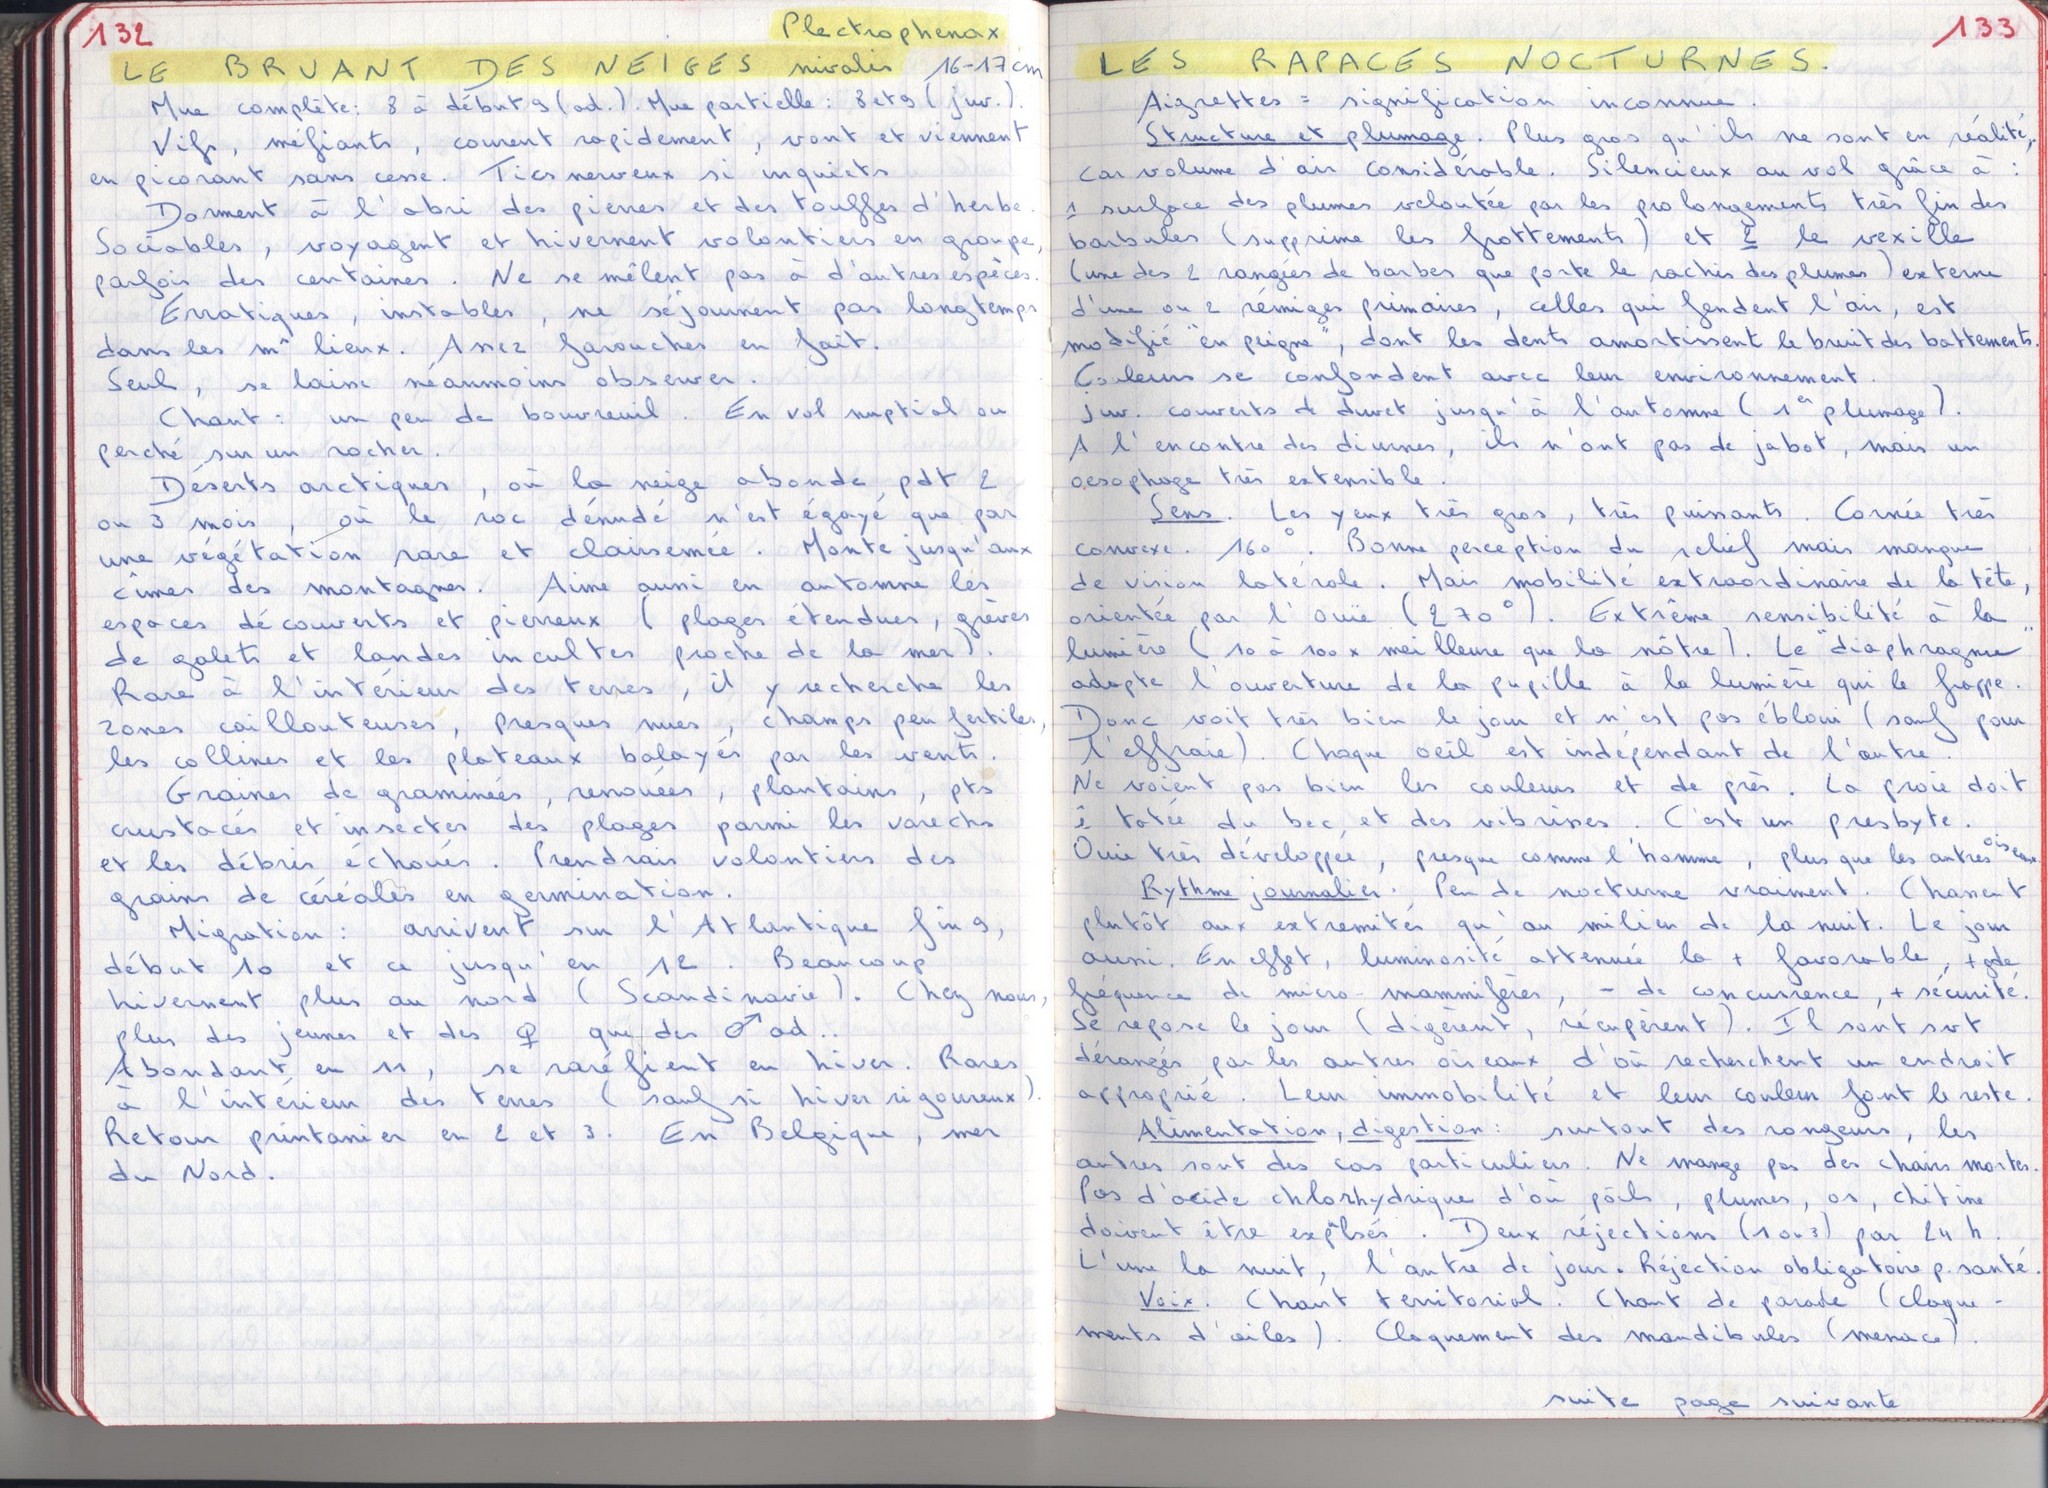 132
Plectrophenax
LE BRUANT DES NEIGES nivalis 16-17 cm
Mue complète : 8 à début 9 (ad.). Mue partielle : 8 et 9 (juv.).
Vifs, méfiants, courent rapidement, vont et viennent
en picorant sans cesse. Tics nerveux si inquiets
Dorment à l'abri des pierres et des touffes d'herbe.
Sociables, voyagent et hivernent volontiers en groupe,
parfois des centaines. Ne se mêlent pas à d'autres espèces.
Erratiques, instables, ne séjournent pas longtemps
dans les m^ lieux. Assez farouches en fait.
Seul, se laisse néanmoins observer.
Chant : un peu de bouvreuil. En vol nuptial ou
perché sur un rocher.
Déserts arctiques, où la neige abonde pdt 2
ou 3 mois, où le roc dénudé n'est égayé que par
une végétation rare et clairsemée. Monte jusqu'aux
cîmes des montagnes. Aime aussi en automne les
espaces découverts et pierreux (plages étendues, grèves
de galets et landes incultes proche de la mer).
Rare à l'intérieur des terres, il y recherche les
zones caillouteuses, presques nues, champs peu fertiles,
les collines et les plateaux balayés par les vents.
Graines de graminées, renouées, plantains, pts
crustacés et insectes des plages parmi les varechs
et les débris échoués. Prendrais volontiers des
grains de céréales en germination.
Migration : arrivent sur l'Atlantique fin 9,
début 10 et ce jusqu'en 12. Beaucoup
hivernent plus au nord (Scandinavie). Chez nous,
plus des jeunes et des ♀ que des ♂ ad..
Abondant en 11, se raréfient en hiver. Rares
à l'intérieur des terres (sauf si hiver rigoureux).
Retour printanier en 2 et 3. En Belgique, mer
du Nord.
133
LES RAPACES NOCTURNES.
Aigrettes = signification inconnue.
Structure et plumage. Plus gros qu'ils ne sont en réalité,
car volume d'air considérable. Silencieux au vol grâce à :
1 surface des plumes veloutée par les prolongements très fin des
barbules (supprime les frottements) et 2 le vexille
(une des 2 rangées de barbes que porte le rachis des plumes) externe
d'une ou 2 rémiges primaires, celles qui fendent l'air, est
modifié "en peigne", dont les dents amortissent le bruit des battements.
Couleurs se confondent avec leur environnement.
juv. couverts de duvet jusqu'à l'automne (1er plumage).
A l'encontre des diurnes, ils n'ont pas de jabot, mais un
oesophage très extensible.
Sens. Les yeux très gros, très puissants. Cornée très
convexe. 160°. Bonne perception du relief mais manque
de vision latérale. Mais mobilité extraordinaire de la tête,
orientée par l'ouïe (270°). Extrême sensibilité à la
lumière (10 à 100x meilleure que la nôtre). Le "diaphragme"
adapte l'ouverture de la pupille à la lumière qui le frappe.
Donc voit très bien le jour et n'est pas ébloui (sauf pour
l'effraie). Chaque oeil est indépendant de l'autre.
Ne voient pas bien les couleurs et de près. La proie doit
ê tatée du bec et des vibrisses. C'est un presbyte.
Ouïe très développée, presque comme l'homme, plus que les autres oiseaux.
Rythme journalier. Peu de nocturne vraiment. Chassent
plutôt aux extremités qu'au milieu de la nuit. Le jour
aussi. En effet, luminosité attenuée la + favorable, + gde
fréquence de micro-mammifères, - de concurrence, + sécurité.
Se repose le jour (digèrent, récupèrent). Il sont svt
dérangés par les autres oiseaux d'où recherchent un endroit
approprié. Leur immobilité et leur couleur font le reste.
Alimentation, digestion : surtout des rongeurs, les
autres sont des cas particuliers. Ne mange pas des chairs mortes.
Pas d'acide chlorhydrique d'où pöils, plumes, os, chitine
doivent être explsés. Deux réjections (1 ou 3) par 24 h.
L'une la nuit, l'autre de jour. Réjection obligatoire p. santé.
Voix. Chant territorial. Chant de parade (claque-
ments d'ailes). Claquement des mandibules (menace).
suite page suivante